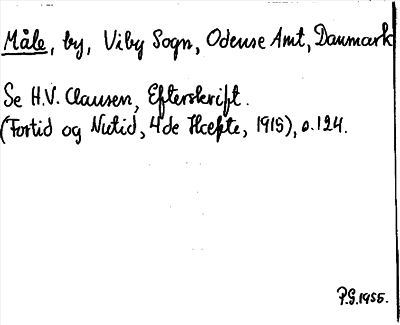 Måle, by, Viby Sogn, Odense Amt, Danmark
Se H.V. Clausen, Efterskrift.
(Fortid og Nutid, 4de Hæfte, 1915), s.124.
P.G.1955.